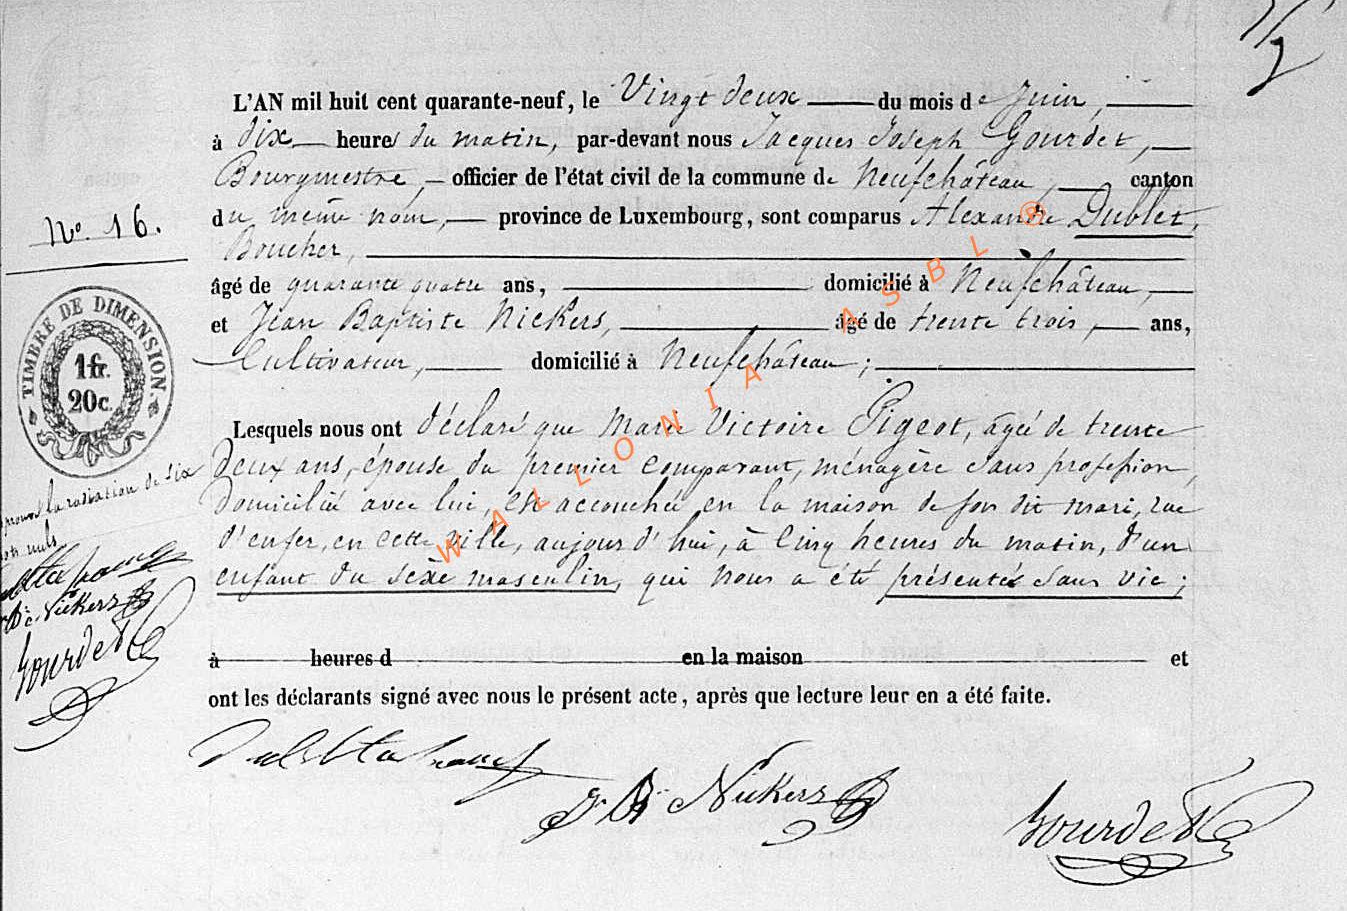 L'AN mil huit cent quarante-neuf, le Vingt deux du mois de Juin,
à dix heures du matin, par-devant nous Jacques Joseph Gourdet,
Bourgmestre, officier de l'état civil de la commune de Neufchâteau, canton
du même nom, province de Luxembourg, sont comparus Alexandre Dublet,
Boucher,
âgé de quarante quatre ans, domicilié à Neufchâteau,
et Jean Baptiste Nickers, âgé de trente trois, ans,
Cultivateur, domicilié à Neufchâteau;
Lesquels nous ont déclaré que Marie Victoire Pigeot, âgée de trente
deux ans, épouse du premier comparant, ménagère sans profession,
domiciliée avec lui, est accouchée en la maison de son dit mari, rue
d'enfer, en cette ville, aujourd'hui, à Cinq heures du matin, d'un
enfant du sèxe masculin, qui nous a été présenté sans vie;
à heures d en la maison et
ont les déclarants signé avec nous le présent acte, après que lecture leur en a été faite.
Nickers
Gourdet
No. 16.
TIMBRE DE DIMENSION.
1 fr.
20c.
la radiation de six
mots nuls.
Nickers
Gourdet
WALLONIA ASBL ®